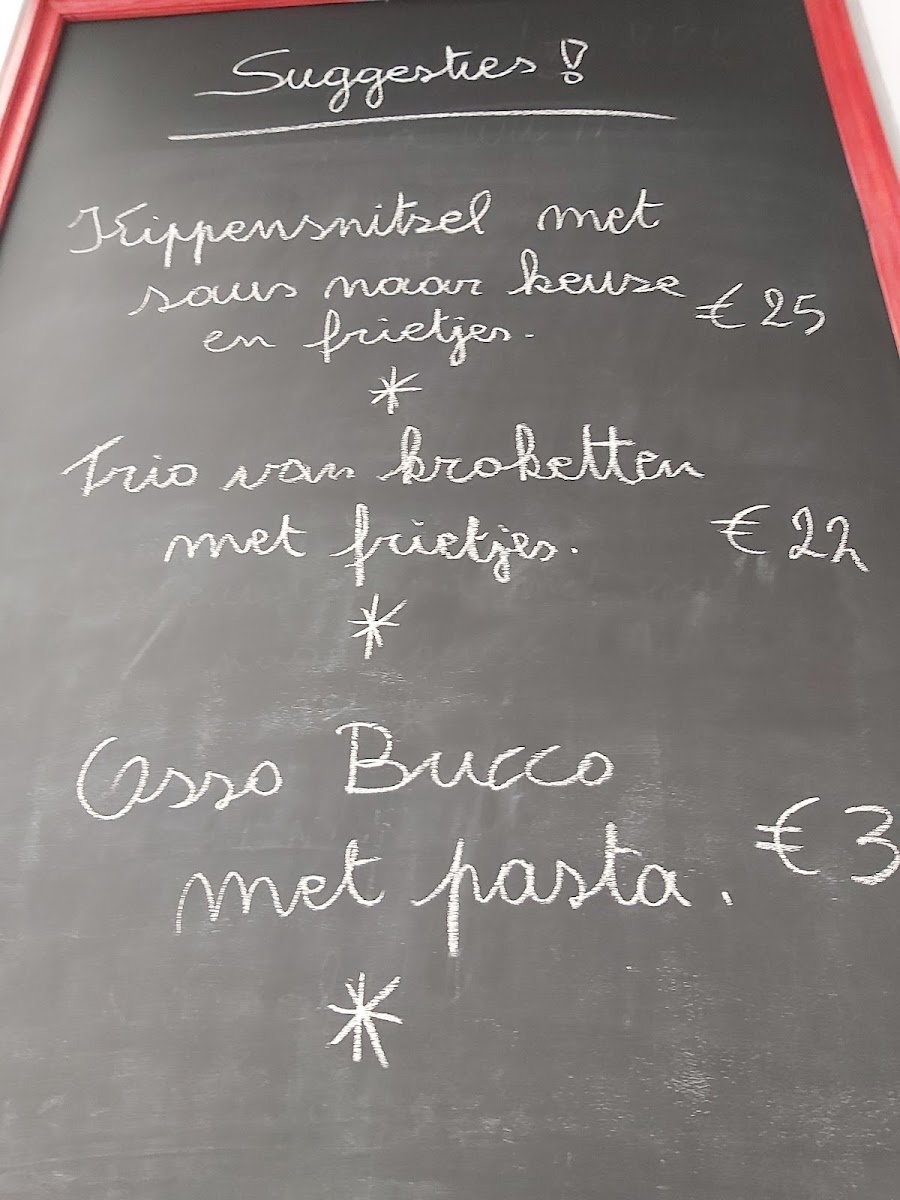 Suggesties!
Kippensnitsel met
saus naar keuze €25
en frietjes.
*
Trio van kroketten
met frietjes. €22
*
Osso Bucco
met pasta. €3
*